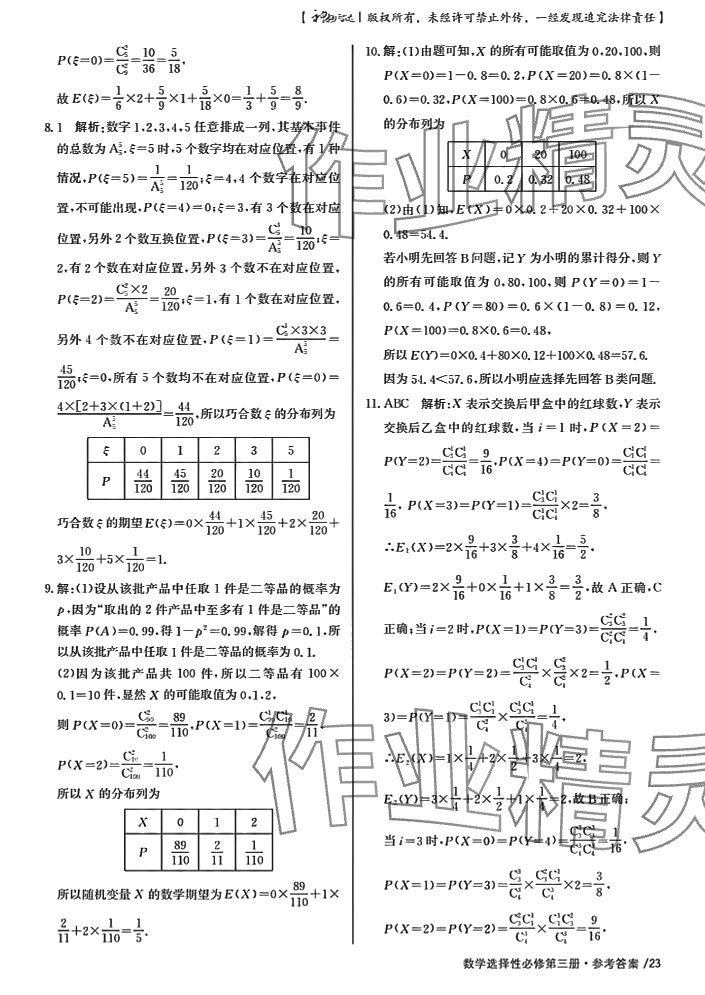 【 | 版权所有，未经许可禁止外传，一经发现追究法律责任】
P(ξ=0)=C₅²/C₉²=10/36=5/18,
故 E(ξ)=1/6×2+5/9×1+5/18×0=1/3+5/9=8/9.
8. 1 解析:数字 1,2,3,4,5 任意排成一列,其基本事件
的总数为 A₅⁵. ξ=5 时,5 个数字均在对应位置,有 1 种
情况,P(ξ=5)=1/A₅⁵=1/120;ξ=4,4 个数字在对应位
置,不可能出现,P(ξ=4)=0;ξ=3,有 3 个数在对应
位置,另外 2 个数互换位置,P(ξ=3)=C₅³/A₅⁵=10/120;ξ=
2,有 2 个数在对应位置,另外 3 个数不在对应位置,
P(ξ=2)=C₅²×2/A₅⁵=20/120;ξ=1,有 1 个数在对应位置,
另外 4 个数不在对应位置,P(ξ=1)=C₅¹×3×3/A₅⁵=
45/120;ξ=0,所有 5 个数均不在对应位置,P(ξ=0)=
4×[2+3×(1+2)]/A₅⁵=44/120,所以巧合数 ξ 的分布列为
ξ 0 1 2 3 5
P 44/120 45/120 20/120 10/120 1/120
巧合数 ξ 的期望 E(ξ)=0×44/120+1×45/120+2×20/120+
3×10/120+5×1/120=1.
9. 解:(1)设从该批产品中任取 1 件是二等品的概率为
p,因为“取出的 2 件产品中至多有 1 件是二等品”的
概率 P(A)=0.99,得 1-p²=0.99,解得 p=0.1,所
以从该批产品中任取 1 件是二等品的概率为 0.1.
(2)因为该批产品共 100 件,所以二等品有 100×
0.1=10 件,显然 X 的可能取值为 0,1,2,
则 P(X=0)=C₉₀²/C₁₀₀²=89/110,P(X=1)=C₉₀¹C₁₀¹/C₁₀₀²=2/11,
P(X=2)=C₁₀²/C₁₀₀²=1/110,
所以 X 的分布列为
X 0 1 2
P 89/110 2/11 1/110
所以随机变量 X 的数学期望为 E(X)=0×89/110+1×
2/11+2×1/110=1/5.
10. 解:(1)由题可知,X 的所有可能取值为 0,20,100,则
P(X=0)=1-0.8=0.2,P(X=20)=0.8×(1-
0.6)=0.32,P(X=100)=0.8×0.6=0.48,所以 X
的分布列为
X 0 20 100
P 0.2 0.32 0.48
(2)由(1)知,E(X)=0×0.2+20×0.32+100×
0.48=54.4.
若小明先回答 B 问题,记 Y 为小明的累计得分,则 Y
的所有可能取值为 0,80,100,则 P(Y=0)=1-
0.6=0.4,P(Y=80)=0.6×(1-0.8)=0.12,
P(X=100)=0.8×0.6=0.48,
所以 E(Y)=0×0.4+80×0.12+100×0.48=57.6.
因为 54.4<57.6,所以小明应选择先回答 B 类问题.
11. ABC 解析:X 表示交换后甲盒中的红球数,Y 表示
交换后乙盒中的红球数,当 i=1 时,P(X=2)=
P(Y=2)=C₃¹C₃¹/C₄¹C₄¹=9/16,P(X=4)=P(Y=0)=C₁¹C₁¹/C₄¹C₄¹=
1/16,P(X=3)=P(Y=1)=C₃¹C₁¹/C₄¹C₄¹×2=3/8,
∴E₁(X)=2×9/16+3×3/8+4×1/16=5/2,
E₁(Y)=2×9/16+0×1/16+1×3/8=3/2,故 A 正确,C
正确;当 i=2 时,P(X=1)=P(Y=3)=C₃²C₃²/C₄²C₄²=1/4,
P(X=2)=P(Y=2)=C₃¹C₁¹/C₄²×C₃²/C₄²×2=1/2,P(X=
3)=P(Y=1)=C₃¹C₁¹/C₄²×C₃¹C₁¹/C₄²=1/4,
∴E₂(X)=1×1/4+2×1/2+3×1/4=2,
E₂(Y)=3×1/4+2×1/2+1×1/4=2,故 B 正确;
当 i=3 时,P(X=0)=P(Y=4)=C₃³C₃³/C₄³C₄³=1/16,
P(X=1)=P(Y=3)=C₃³/C₄³×C₃²C₁¹/C₄³×2=3/8,
P(X=2)=P(Y=2)=C₃²C₁¹/C₄³×C₁¹C₃²/C₄³=9/16,
数学选择性必修第三册·参考答案 /23
作业精灵
作业精灵